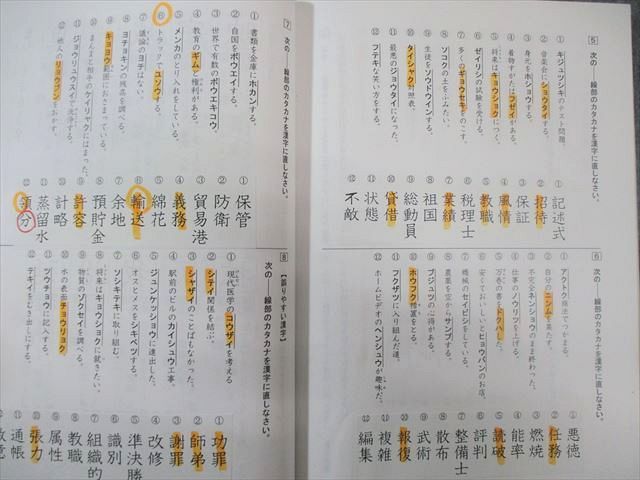 5 次の――線部のカタカナを漢字に直しなさい。
① キジュツシキのテスト問題。
② 音楽会にショウタイする。
③ 身元をホショウする。
④ 着物すがたはフゼイがある。
⑤ 将来はキョウショクにつく。
⑥ ゼイリシの試験を受ける。
⑦ 多くのギョウセキをのこす。
⑧ ソコクの土をふみたい。
⑨ 生徒をソウドウインする。
⑩ タイシャク対照表。
⑪ 最悪のジョウタイになった。
⑫ フテキな笑い方をする。
① 記述式
② 招待
③ 保証
④ 風情
⑤ 教職
⑥ 税理士
⑦ 業績
⑧ 祖国
⑨ 総動員
⑩ 貸借
⑪ 状態
⑫ 不敵
6 次の――線部のカタカナを漢字に直しなさい。
① アクトク商法でつかまる。
② 自分のニンムを果たす。
③ 不完全ネンショウのまま終わった。
④ 仕事のノウリツを上げる。
⑤ 万巻の書をドクハした。
⑥ 安くておいしいとヒョウバンのお店。
⑦ 機械のセイビシをしている。
⑧ 農薬を空からサンプする。
⑨ ブジュツの心得がある。
⑩ ホウフク措置をとる。
⑪ フクザツに入り組んだ道。
⑫ ホームビデオのヘンシュウが趣味だ。
① 悪徳
② 任務
③ 燃焼
④ 能率
⑤ 読破
⑥ 評判
⑦ 整備士
⑧ 散布
⑨ 武術
⑩ 報復
⑪ 複雑
⑫ 編集
7 次の――線部のカタカナを漢字に直しなさい。
① 書類を金庫にホカンする。
② 自国をボウエイする。
③ 世界で有数のボウエキコウ。
④ 教育のギムと権利がある。
⑤ メンカのとり入れをしている。
⑥ トラックでユソウする。
⑦ 議論のヨチはない。
⑧ ヨチョキンの残高を調べる。
⑨ キョヨウ範囲におさまっている。
⑩ まんまと相手のケイリャクにはまった。
⑪ ジョウリュウスイで洗浄する。
⑫ 他人のリョウブンをおかす。
① 保管
② 防衛
③ 貿易港
④ 義務
⑤ 綿花
⑥ 輸送
⑦ 余地
⑧ 預貯金
⑨ 許容
⑩ 計略
⑪ 蒸留水
⑫ 領分
8 【誤りやすい漢字】
次の――線部のカタカナを漢字に直しなさい。
① 現代医学のコウザイを考える
② シテイ関係を結ぶ。
③ シャザイのことばもなかった。
④ 駅前のビルのカイシュウ工事。
⑤ ジュンケッショウに進出した。
⑥ オスとメスをシキベツする。
⑦ ソシキテキに取り組む。
⑧ 将来はキョウショクに就きたい。
⑨ 物質のゾクセイを調べる。
⑩ 水の表面チョウリョク
⑪ ツウチョウに記入する。
⑫ テキイをむき出しにする。
① 功罪
② 師弟
③ 謝罪
④ 改修
⑤ 準決勝
⑥ 識別
⑦ 組織的
⑧ 教職
⑨ 属性
⑩ 張力
⑪ 通帳